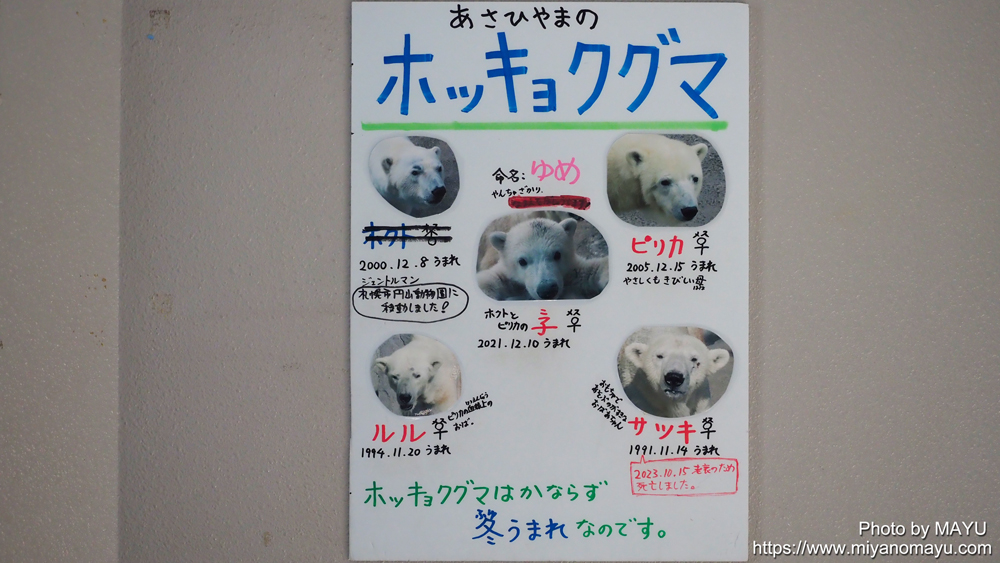 あさひやまの
ホッキョクグマ
命名：ゆめ
やんちゃざかり。
ホクト
2000.12.8 うまれ
ジェントルマン
札幌市円山動物園に
移動しました！
ピリカ
2005.12.15 うまれ
やさしくもきびしい母
ホクトと
ピリカの子
2021.12.10 うまれ
ルル
ピリカの血縁上の
おば。
1994.11.20 うまれ
おもちゃで
おばあちゃん
サツキ
1991.11.14 うまれ
2023.10.15 老衰のため
死亡しました。
ホッキョクグマはかならず
冬うまれなのです。
Photo by MAYU
https://www.miyanomayu.com